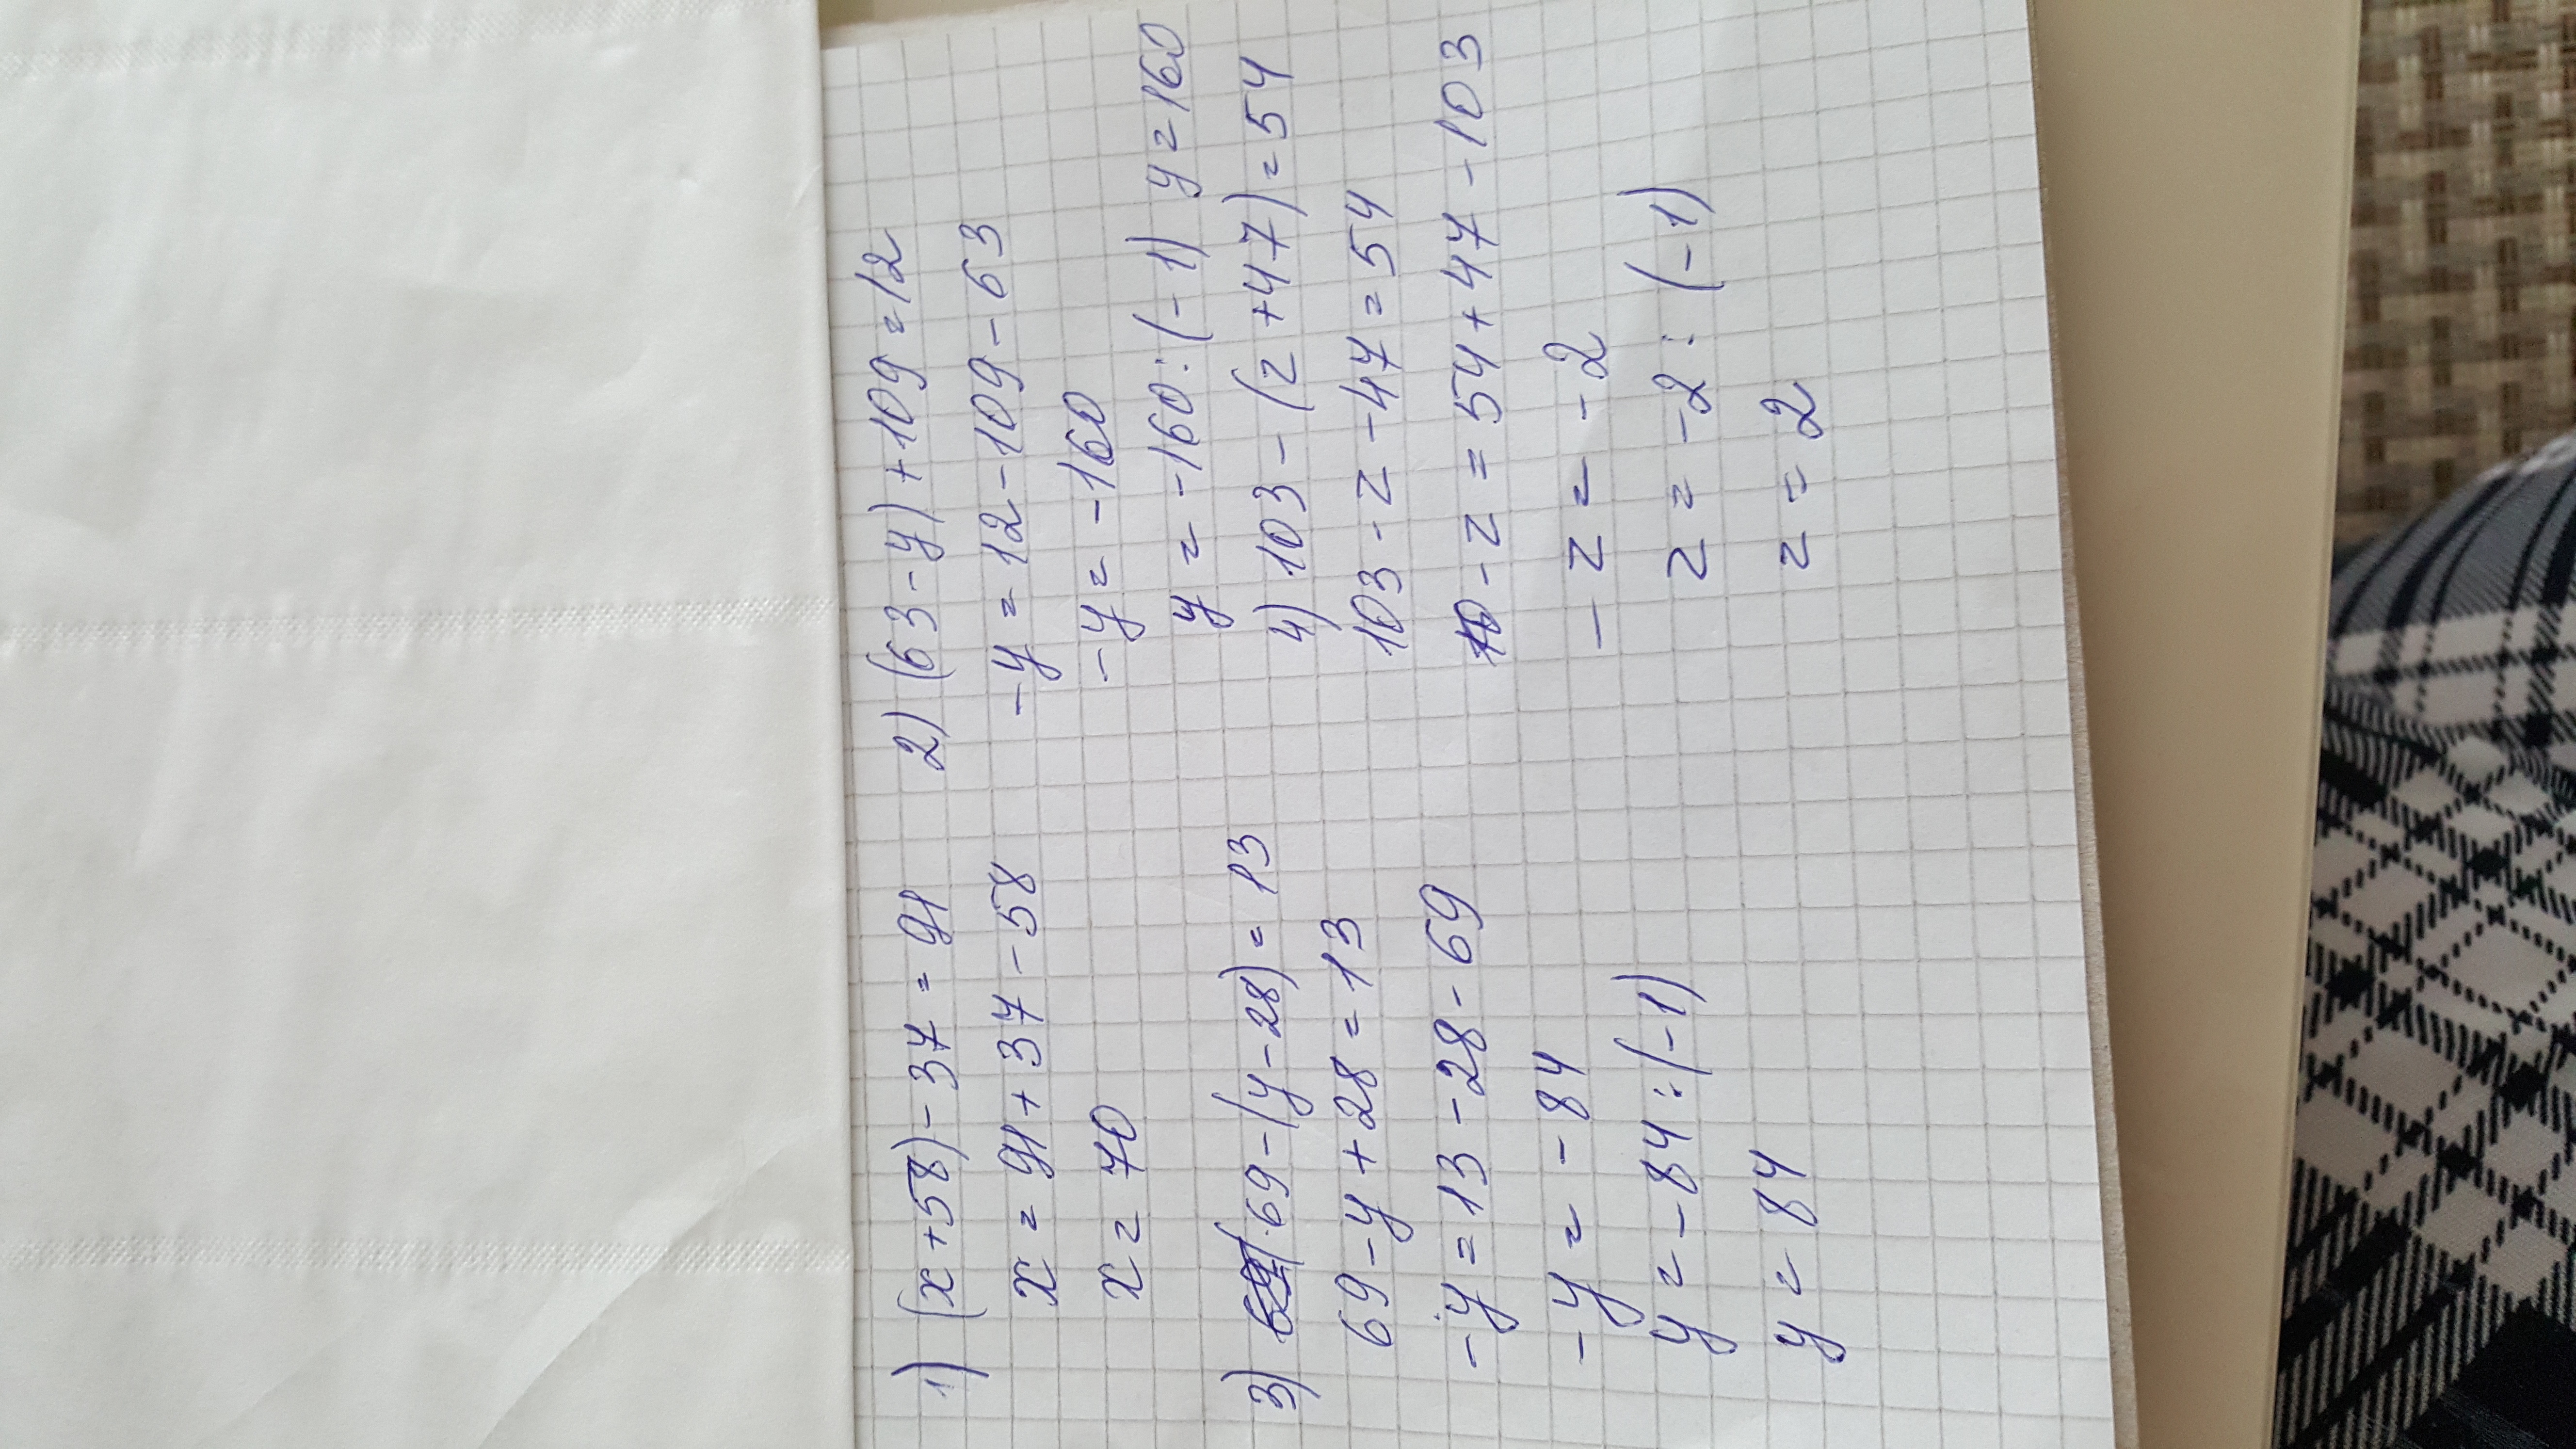 1) (x+58)-37=91
x=91+37-58
x=70
2) (63-y)+109=12
-y=12-109-63
-y=-160
y=-160:(-1) y=160
3) 69-(y-28)=13
69-y+28=13
-y=13-28-69
-y=-84
y=-84:(-1)
y=84
4) 103-(z+47)=54
103-z-47=54
-z=54+47-103
-z=-2
z=-2:(-1)
z=2